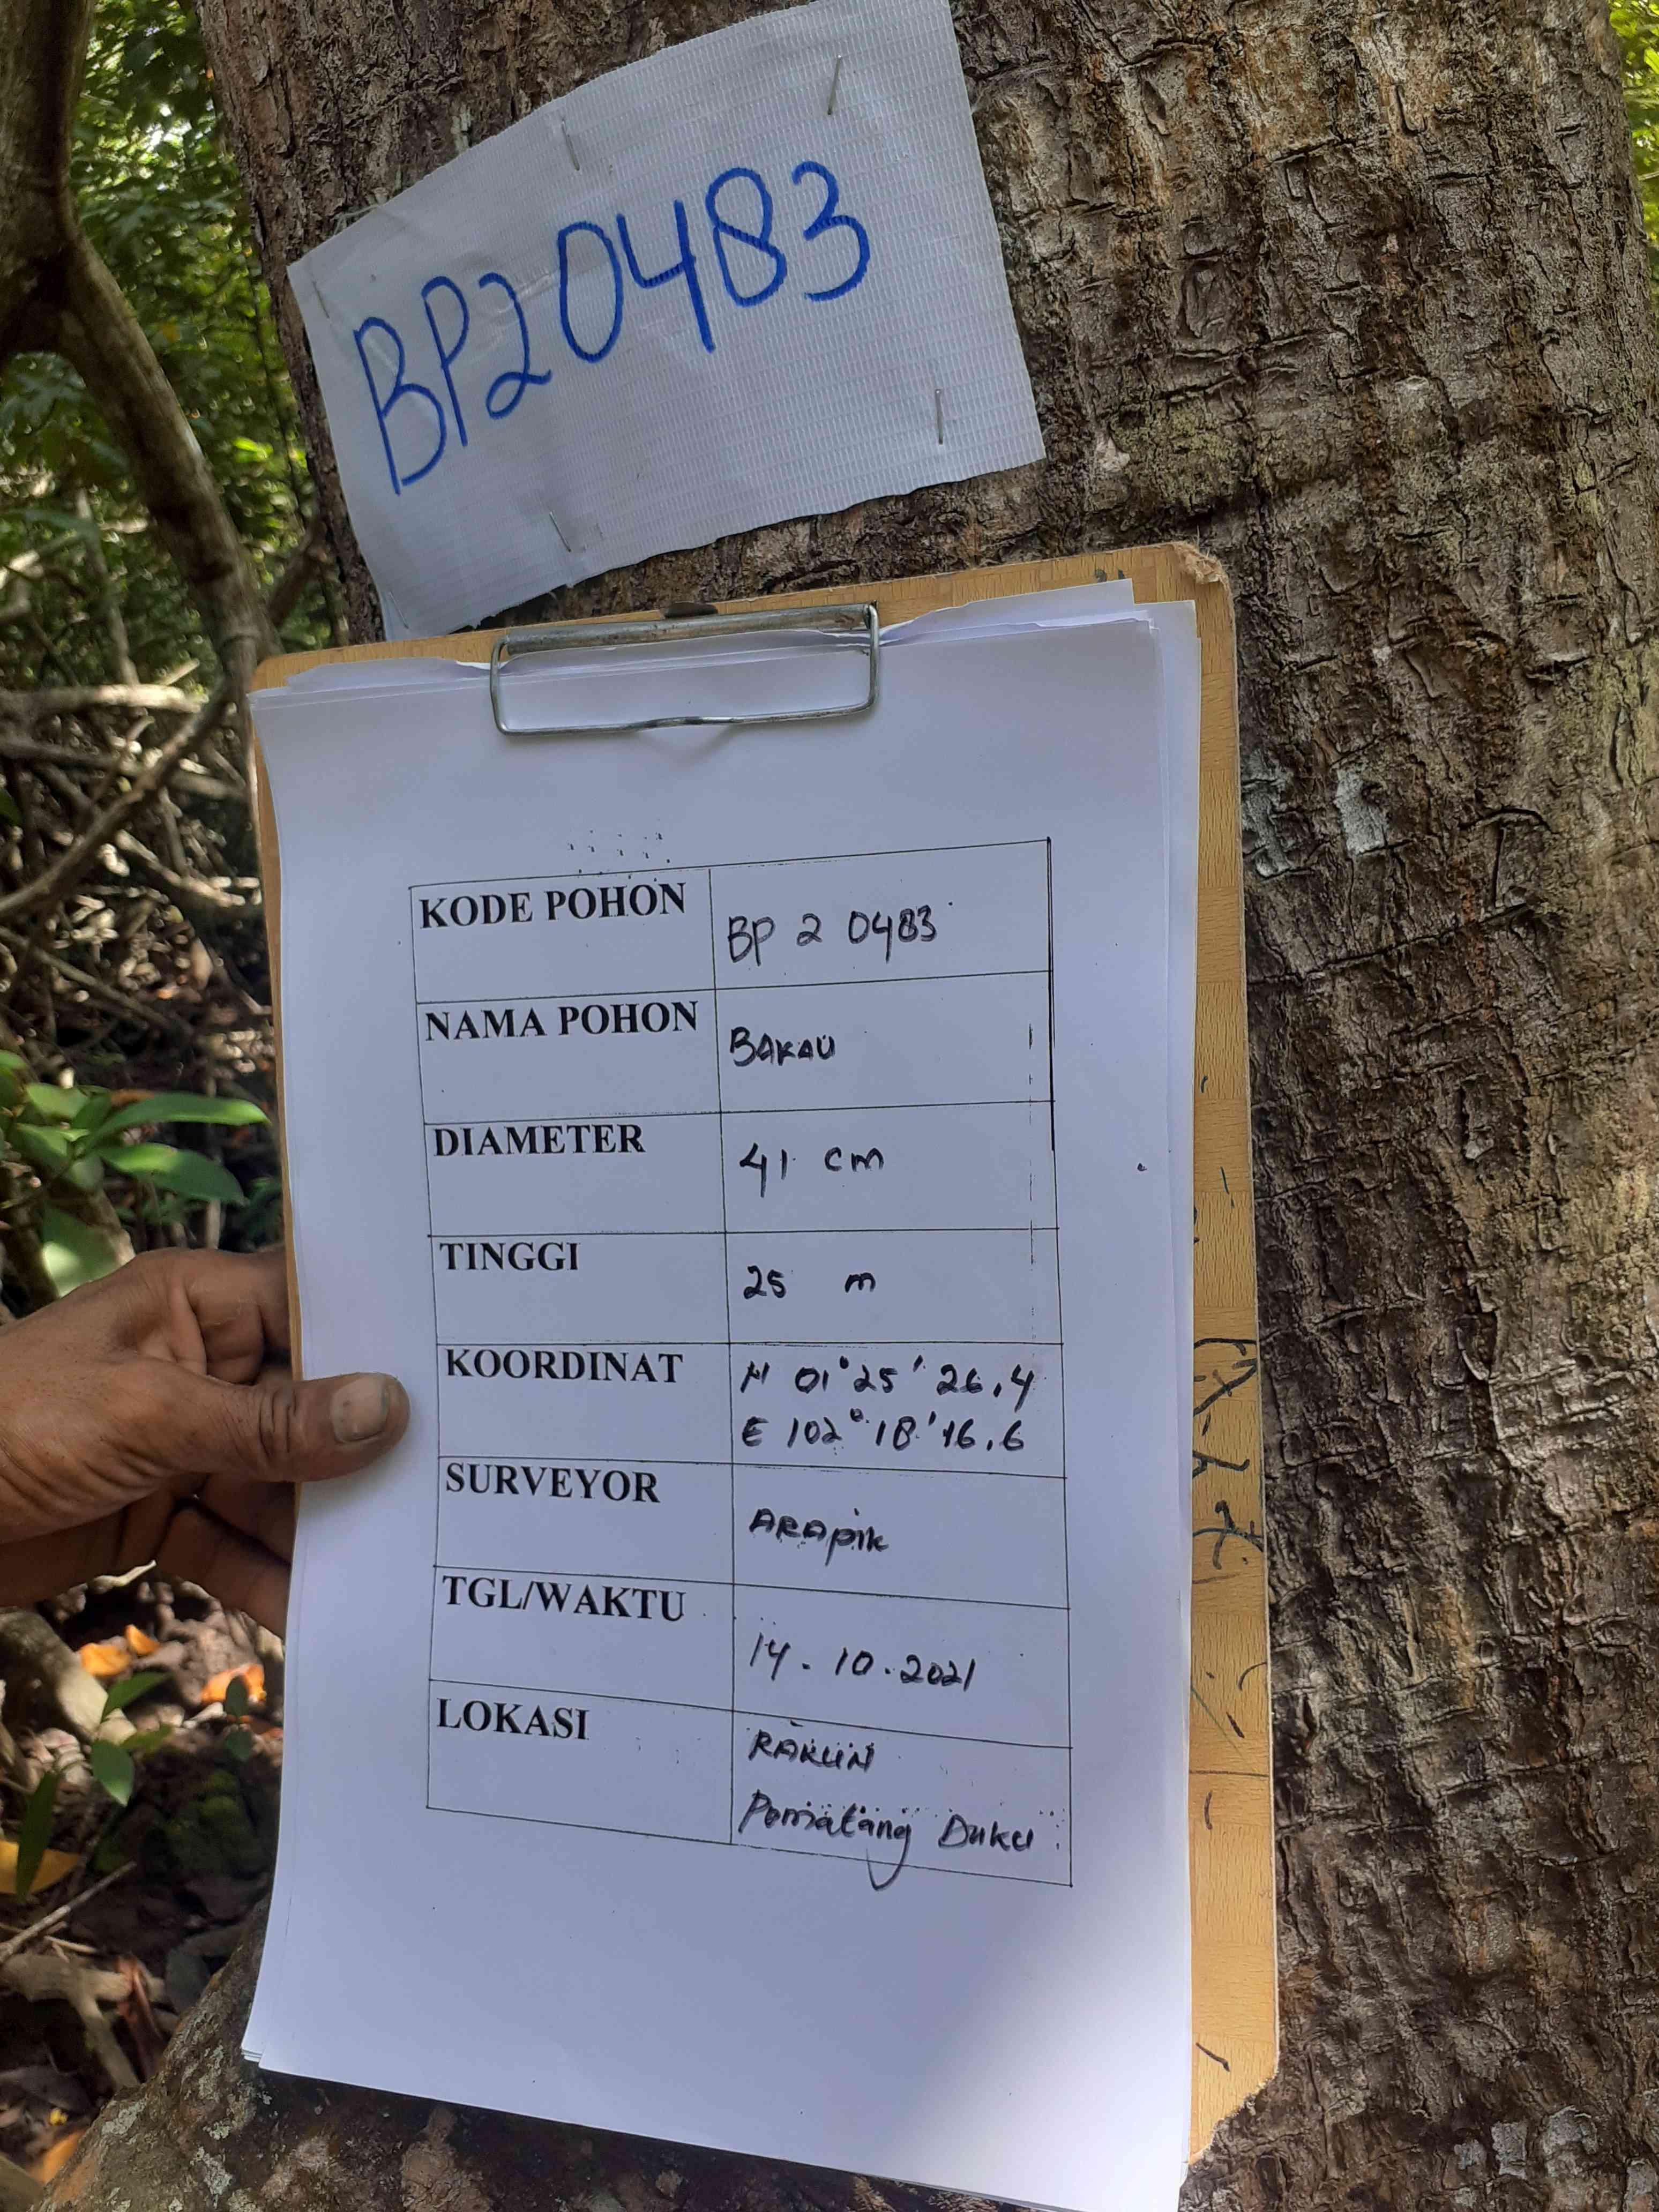 BP20483
KODE POHON
BP 2 0483
NAMA POHON
BAKAU
DIAMETER
41 cm
TINGGI
25 m
KOORDINAT
N 01°25'26,4
E 102°18'16,6
SURVEYOR
ARAPIK
TGL/WAKTU
14.10.2021
LOKASI
RAKUN
Pematang Duku